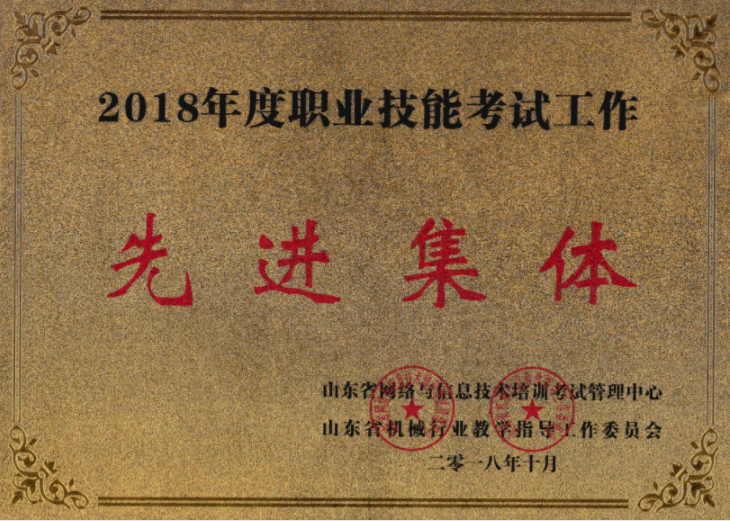 2018年度职业技能考试工作
先进集体
山东省网络与信息技术培训考试管理中心
山东省机械行业教学指导工作委员会
二零一八年十月